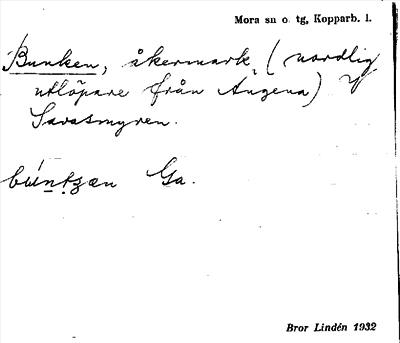 Mora sn o. tg, Kopparb. l.
Bunken, åkermark (nordlig
utlöpare från Angena) V
Savasmyren.
Ga.
Bror Lindén 1932